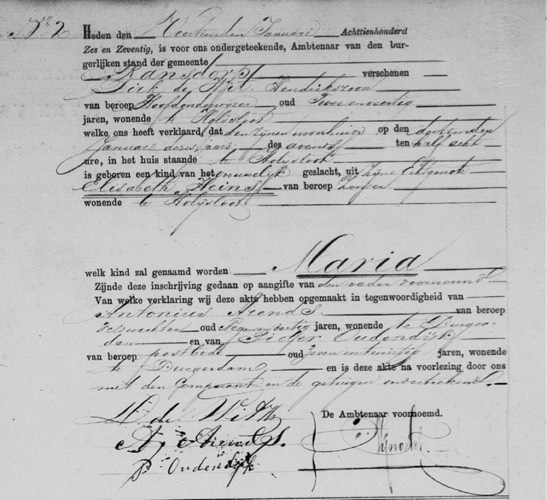 No 2
Heden den Veertienden Januari Achttienhonderd
Zes en Zeventig, is voor ons ondergeteekende, Ambtenaar van den bur-
gerlijken stand der gemeente
Ransdorp verschenen
Dirk de Wit Hendrikszoon
van beroep Hoofdonderwijzer oud Twee en veertig
jaren, wonende te Holijsloot
welke ons heeft verklaard, dat ten zijnen woonhuize op den dertienden
Januari dezes jaars des avonds ten half acht
ure, in het huis staande te Holijsloot
is geboren een kind van het vrouwelijk geslacht, uit zijne Echtgenoote
Elisabeth Heins van beroep zonder
wonende te Holijsloot
welk kind zal genaamd worden Maria
Zijnde deze inschrijving gedaan op aangifte van den vader voornoemd
Van welke verklaring wij deze akte hebben opgemaakt in tegenwoordigheid van
Antonius Arends van beroep
veldwachter oud jaren, wonende te Durger-
dam en van Pieter Oudendijk
van beroep postbode oud zeven en twintig jaren, wonende
te Durgerdam en is deze akte na voorlezing door ons
met den Comparant en de getuigen onderteekend
De Ambtenaar voornoemd.
D. de Wit Hz
A. Arends.
P. Oudendijk